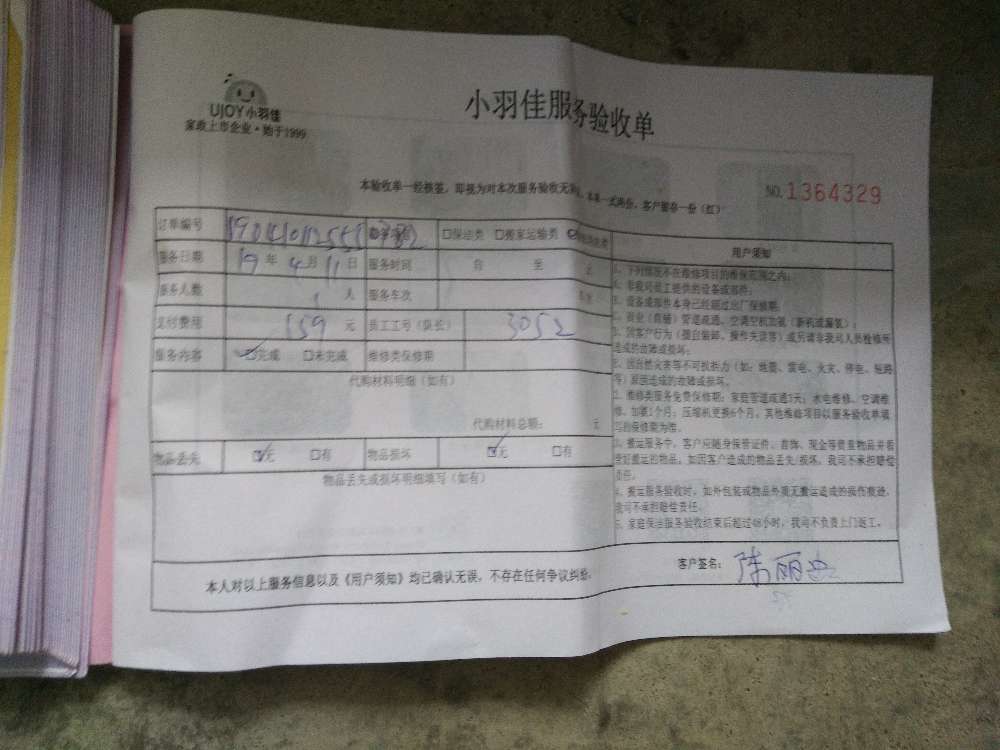 UJOY 小羽佳
家政上市企业·始于1999
小羽佳服务验收单
本验收单一经核签，即视为对本次服务验收无 本单一式两份，客户留存一份（红）
NO.1364329
订单编号
□保洁类 □搬家运输类
用户须知
服务日期 19 年 4 月 11 日 服务时间 自 至
服务人数 1 人 服务车次
支付费用 159 元 员工工号（队长） 3052
服务内容 ☑完成 □未完成 维修类保修期
代购材料明细（如有）
代购材料总额： 元
物品丢失 ☑无 □有 物品损坏 ☑无 □有
物品丢失或损坏明细填写（如有）
1、下列情况不在维修项目的维保范围之内：
A、非我司员工提供的设备或部件。
B、设备或部件本身已经超过出厂保修期。
C、商业（商铺）管道疏通、空调空机加氨（新机或漏氨）。
D、因客户行为（擅自装卸、操作失误等）或另请非我司人员检修所
造成的故障或损坏。
E、因自然灾害等不可抗拒力（如：地震、雷电、火灾、停电、短路
等）原因造成的故障或损坏。
2、维修类服务免费保修期：家庭管道疏通3天；水电维修、空调维
修、加氨1个月；压缩机更换6个月。其他维修项目以服务验收单填
写的保修期为准。
3、搬运服务中，客户应随身保管证件、首饰、现金等贵重物品并看
管好搬运的物品，如因客户造成的物品丢失/损坏，我司不承担赔偿
责任。
4、搬运服务验收时，如外包装或物品外观无搬运造成的损伤痕迹，
我司不承担赔偿责任。
5、家庭保洁服务验收结束后超过48小时，我司不负责上门返工。
本人对以上服务信息以及《用户须知》均已确认无误，不存在任何争议纠纷。
客户签名： 陈丽